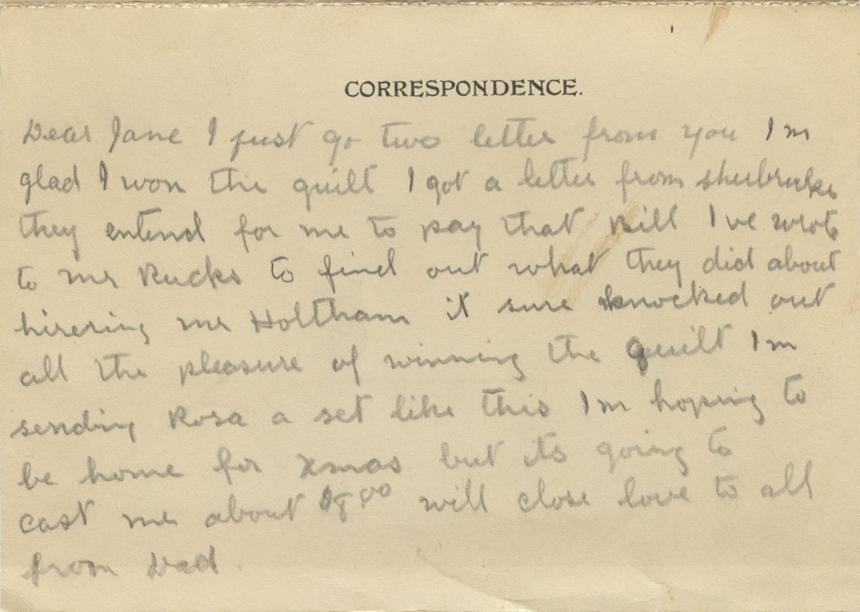 CORRESPONDENCE.
Dear Jane I just go two letter from you I'm
glad I won the quilt I got a letter from sherbrooke
they entend for me to pay that Bill I've wrote
to Mr Rucks to find out what they did about
hirering Mr Holtham it sure knocked out
all the pleasure of winning the quilt I'm
sending Rosa a set like this I'm hoping to
be home for Xmas but its going to
cast me about $8.00 will close love to all
from Dad.